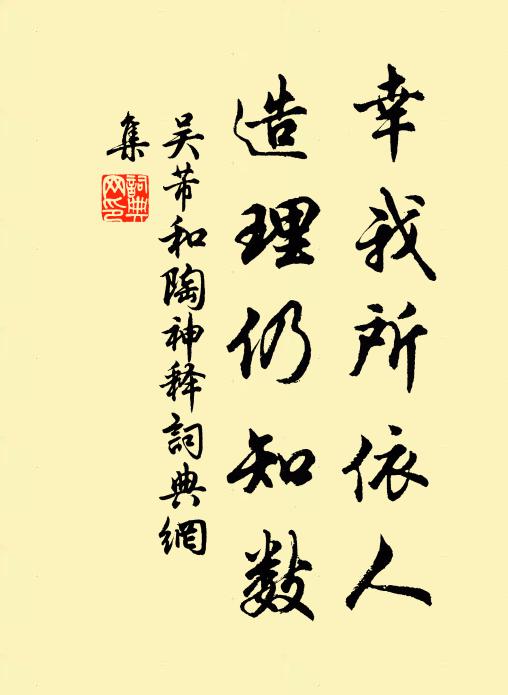 幸我所依人
造理仍知数
吴芾和陶神释詞典網
集
詞典
網印